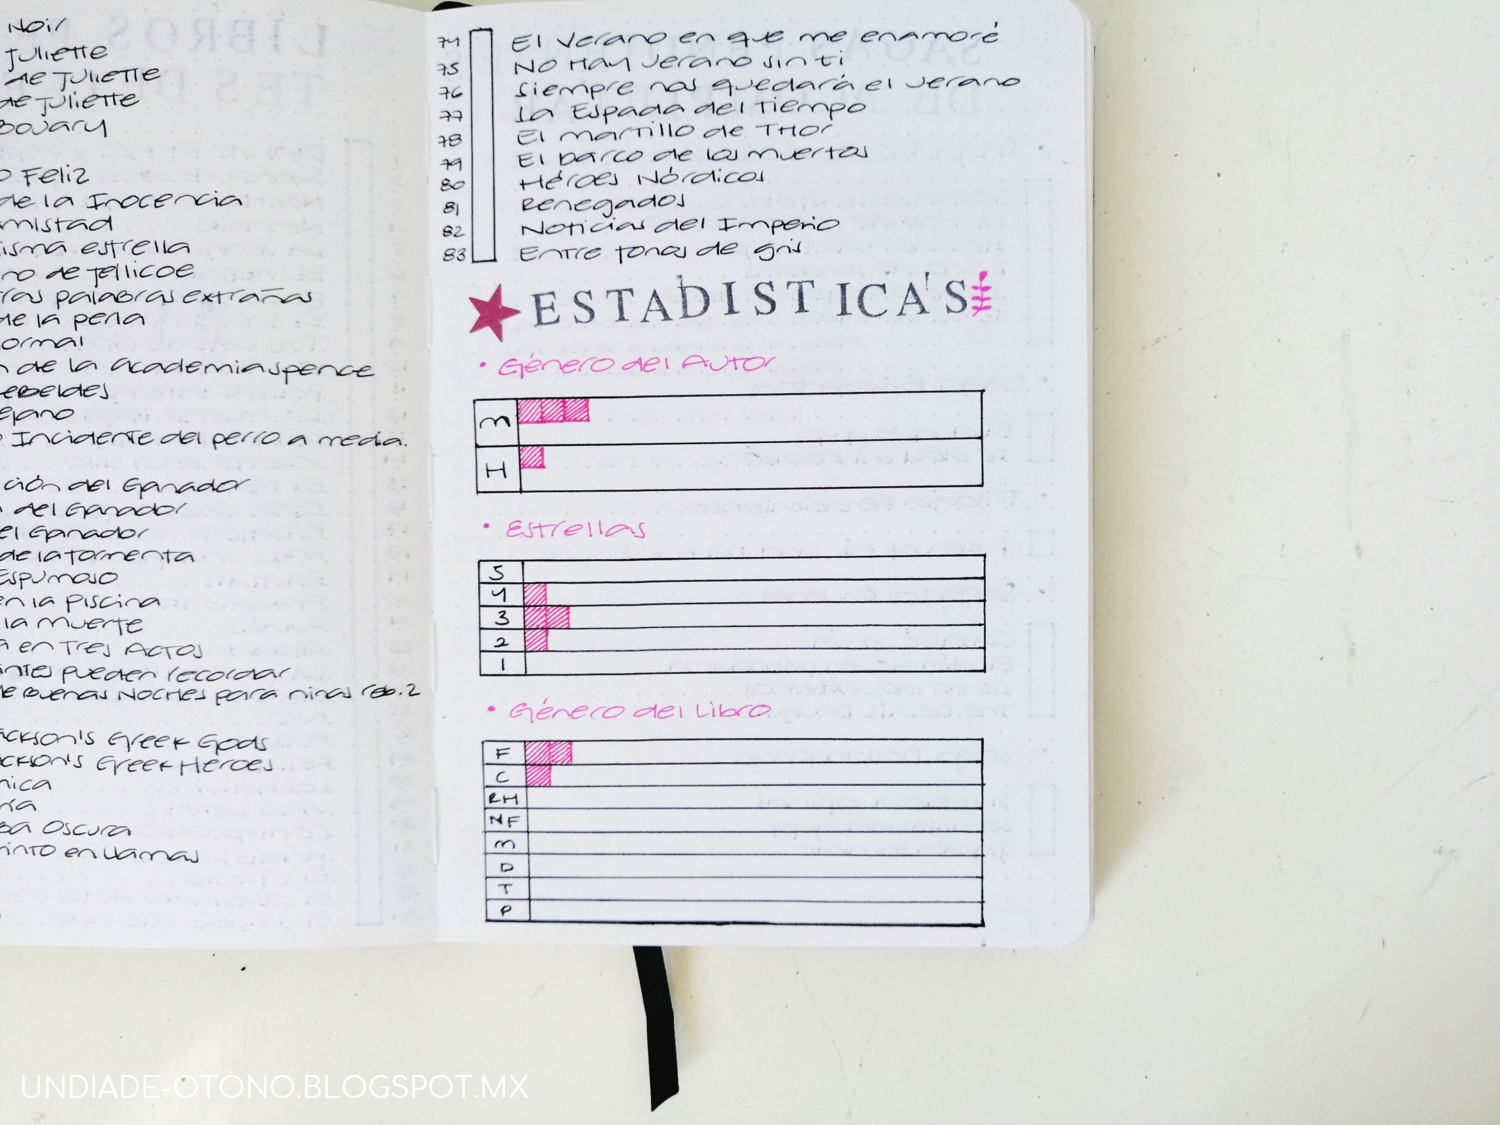 Noir
Juliette
de Juliette
de Juliette
Bovary
Feliz
de la Inocencia
misma estrella
no de Jellicoe
palabras extrañas
de la perla
de la Academia Spence
Rebeldes
Incidente del perro a media.
del Ganador
del Ganador
de la tormenta
Espumoso
en la Piscina
la muerte
en Tres Actos
pueden recordar
Buenas Noches para niñas reb. 2
Jackson's Greek Gods
Jackson's Greek Heroes
Oscura
en llamas
74 El verano en que me enamoré
75 No Hay verano sin ti
76 Siempre nos quedará el verano
77 La Espada del Tiempo
78 El martillo de Thor
79 El barco de los muertos
80 Héroes Nórdicos
81 Renegados
82 Noticias del Imperio
83 Entre tonos de gris
ESTADISTICA'S
• Género del Autor
M
H
• Estrellas
5
4
3
2
1
• Género del Libro
F
C
RH
NF
M
D
T
P
UNDIADE-OTONO.BLOGSPOT.MX